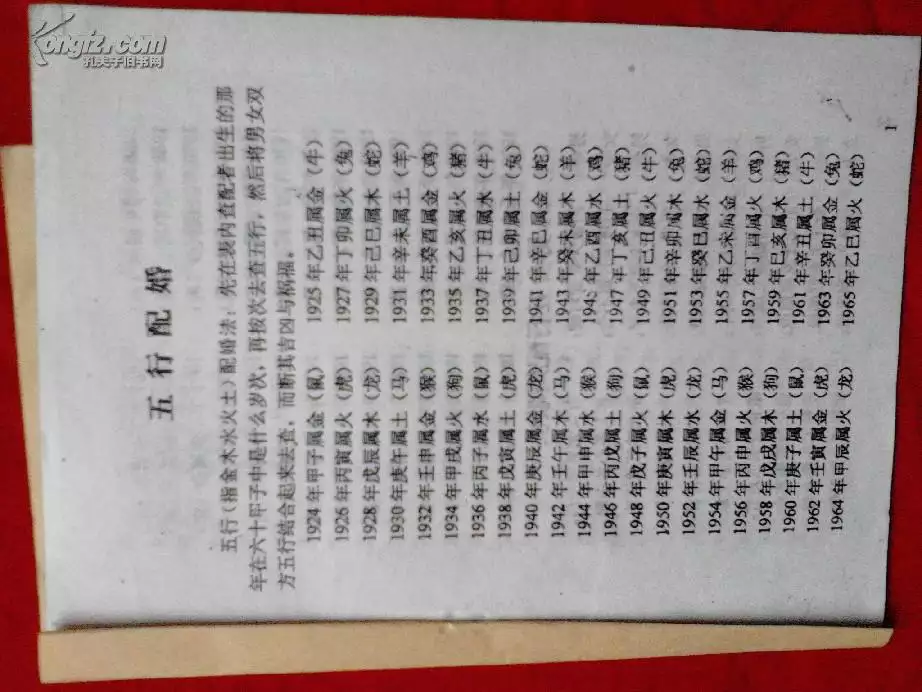 Kongfz.com
孔夫子旧书网
五行配婚
五行(指金木水火土)配婚法：先在表内查配者出生的那
年在六十甲子中是什么岁次，再按次去查五行，然后将男女双
方五行结合起来去查，而断其吉凶与祸福。
1924年甲子属金（鼠） 1925年乙丑属金（牛）
1926年丙寅属火（虎） 1927年丁卯属火（兔）
1928年戊辰属木（龙） 1929年己巳属木（蛇）
1930年庚午属土（马） 1931年辛未属土（羊）
1932年壬申属金（猴） 1933年癸酉属金（鸡）
1934年甲戌属火（狗） 1935年乙亥属火（猪）
1936年丙子属水（鼠） 1937年丁丑属水（牛）
1938年戊寅属土（虎） 1939年己卯属土（兔）
1940年庚辰属金（龙） 1941年辛巳属金（蛇）
1942年壬午属木（马） 1943年癸未属木（羊）
1944年甲申属水（猴） 1945年乙酉属水（鸡）
1946年丙戌属土（狗） 1947年丁亥属土（猪）
1948年戊子属火（鼠） 1949年己丑属火（牛）
1950年庚寅属木（虎） 1951年辛卯属木（兔）
1952年壬辰属水（龙） 1953年癸巳属水（蛇）
1954年甲午属金（马） 1955年乙未属金（羊）
1956年丙申属火（猴） 1957年丁酉属火（鸡）
1958年戊戌属木（狗） 1959年己亥属木（猪）
1960年庚子属土（鼠） 1961年辛丑属土（牛）
1962年壬寅属金（虎） 1963年癸卯属金（兔）
1964年甲辰属火（龙） 1965年乙巳属火（蛇）
1